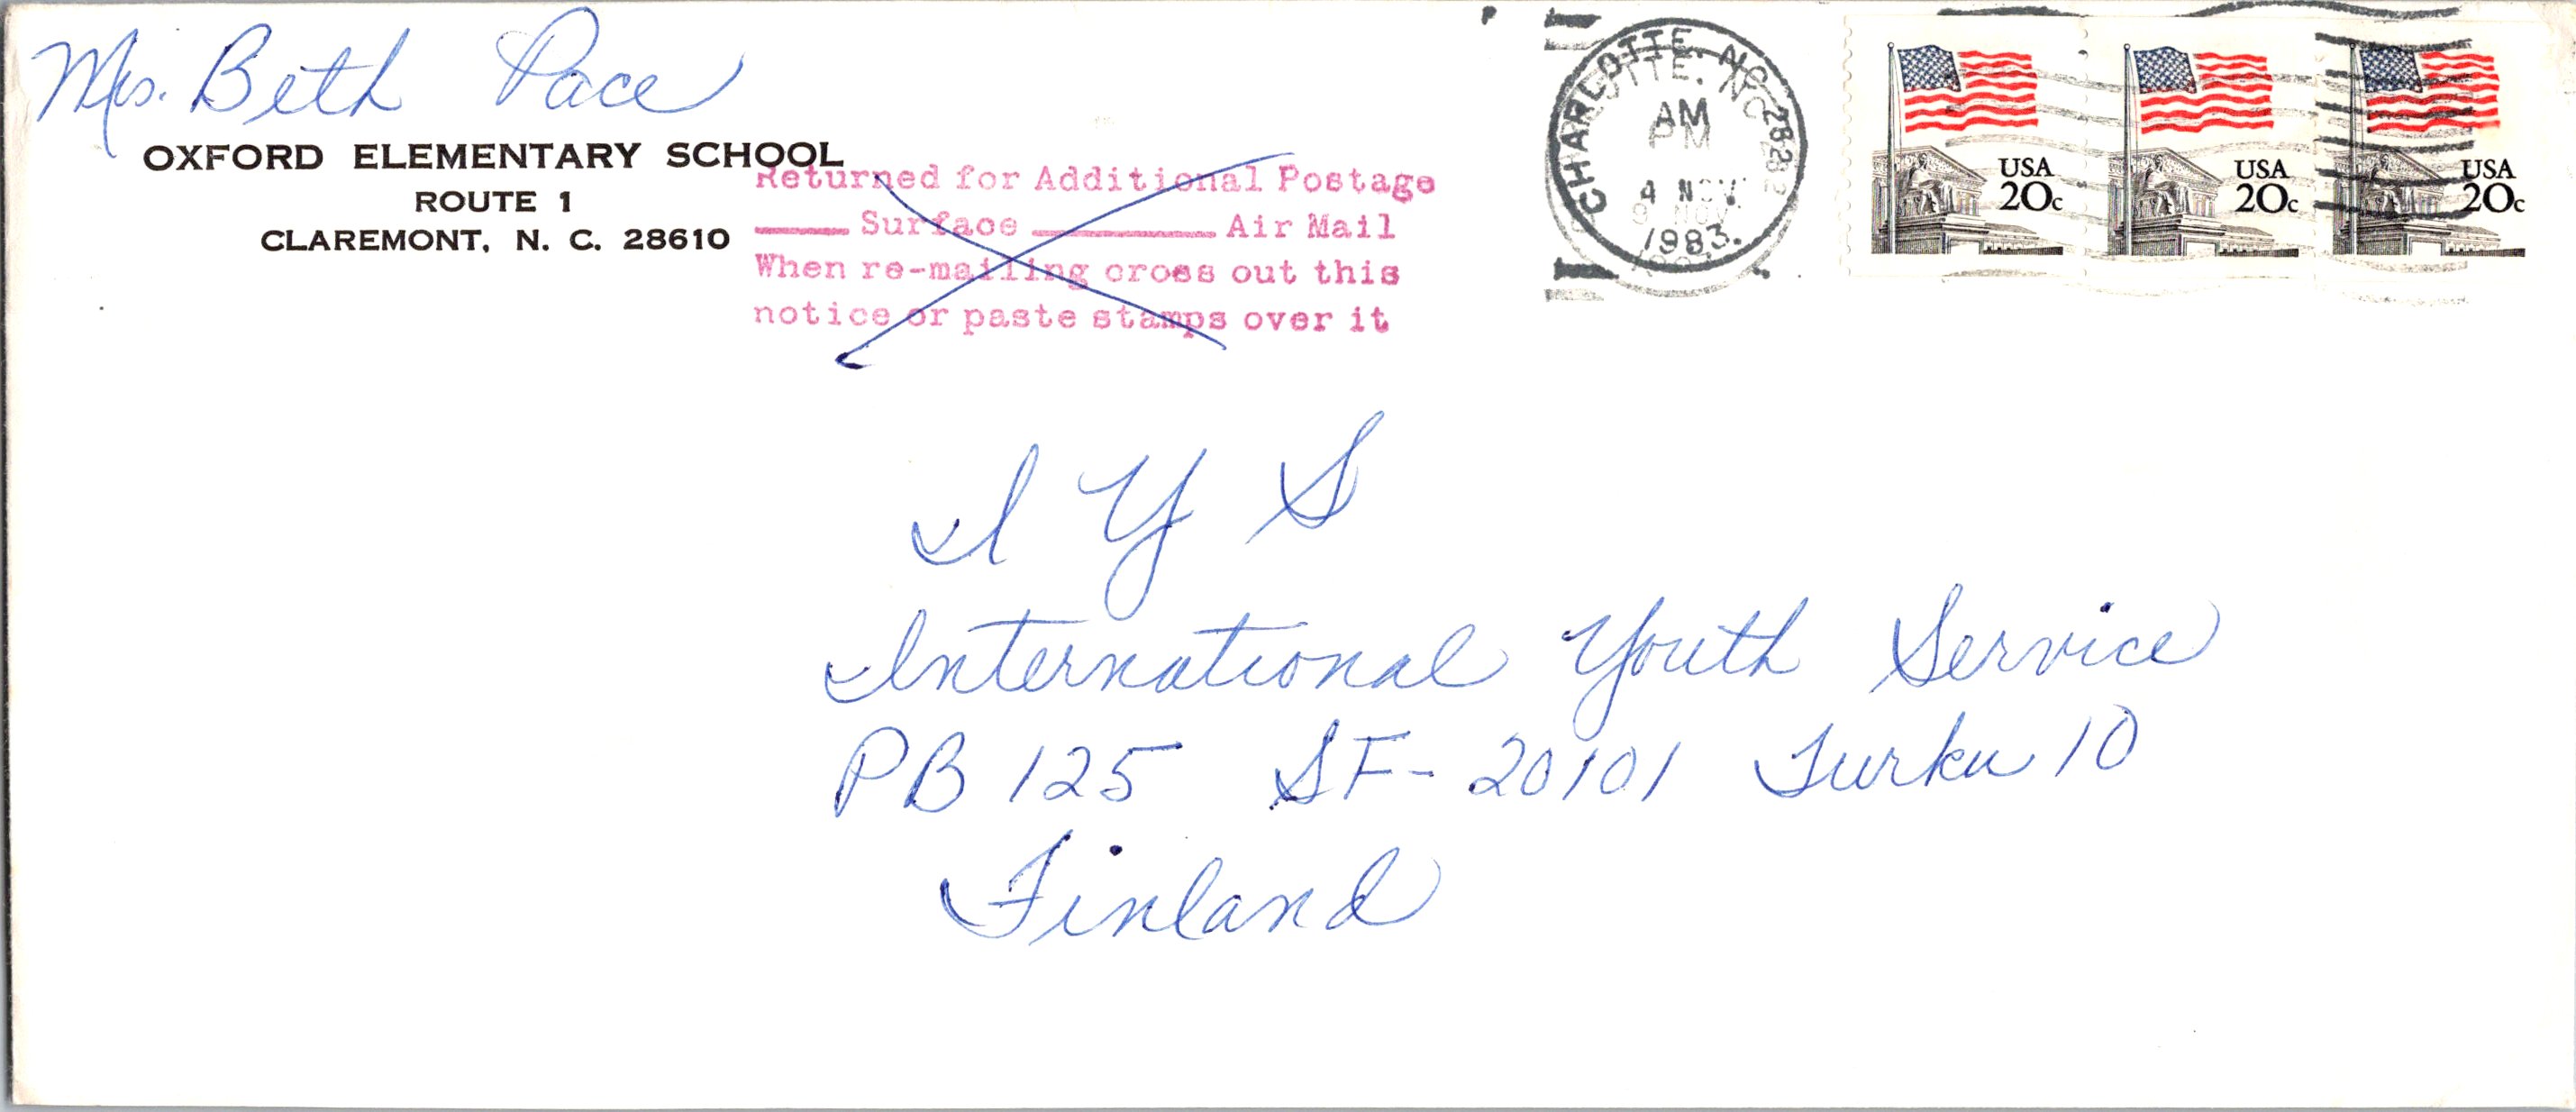 Mrs. Beth Pace
OXFORD ELEMENTARY SCHOOL
ROUTE 1
CLAREMONT, N. C. 28610
Returned for Additional Postage
Surface Air Mail
When re-mailing cross out this
notice or paste stamps over it
CHARLOTTE, NC 282
AM
PM
4 NOV
9 NOV
1983.
USA
20c
USA
20c
USA
20c
I Y S
International Youth Service
PB 125 SF-20101 Turku 10
Finland